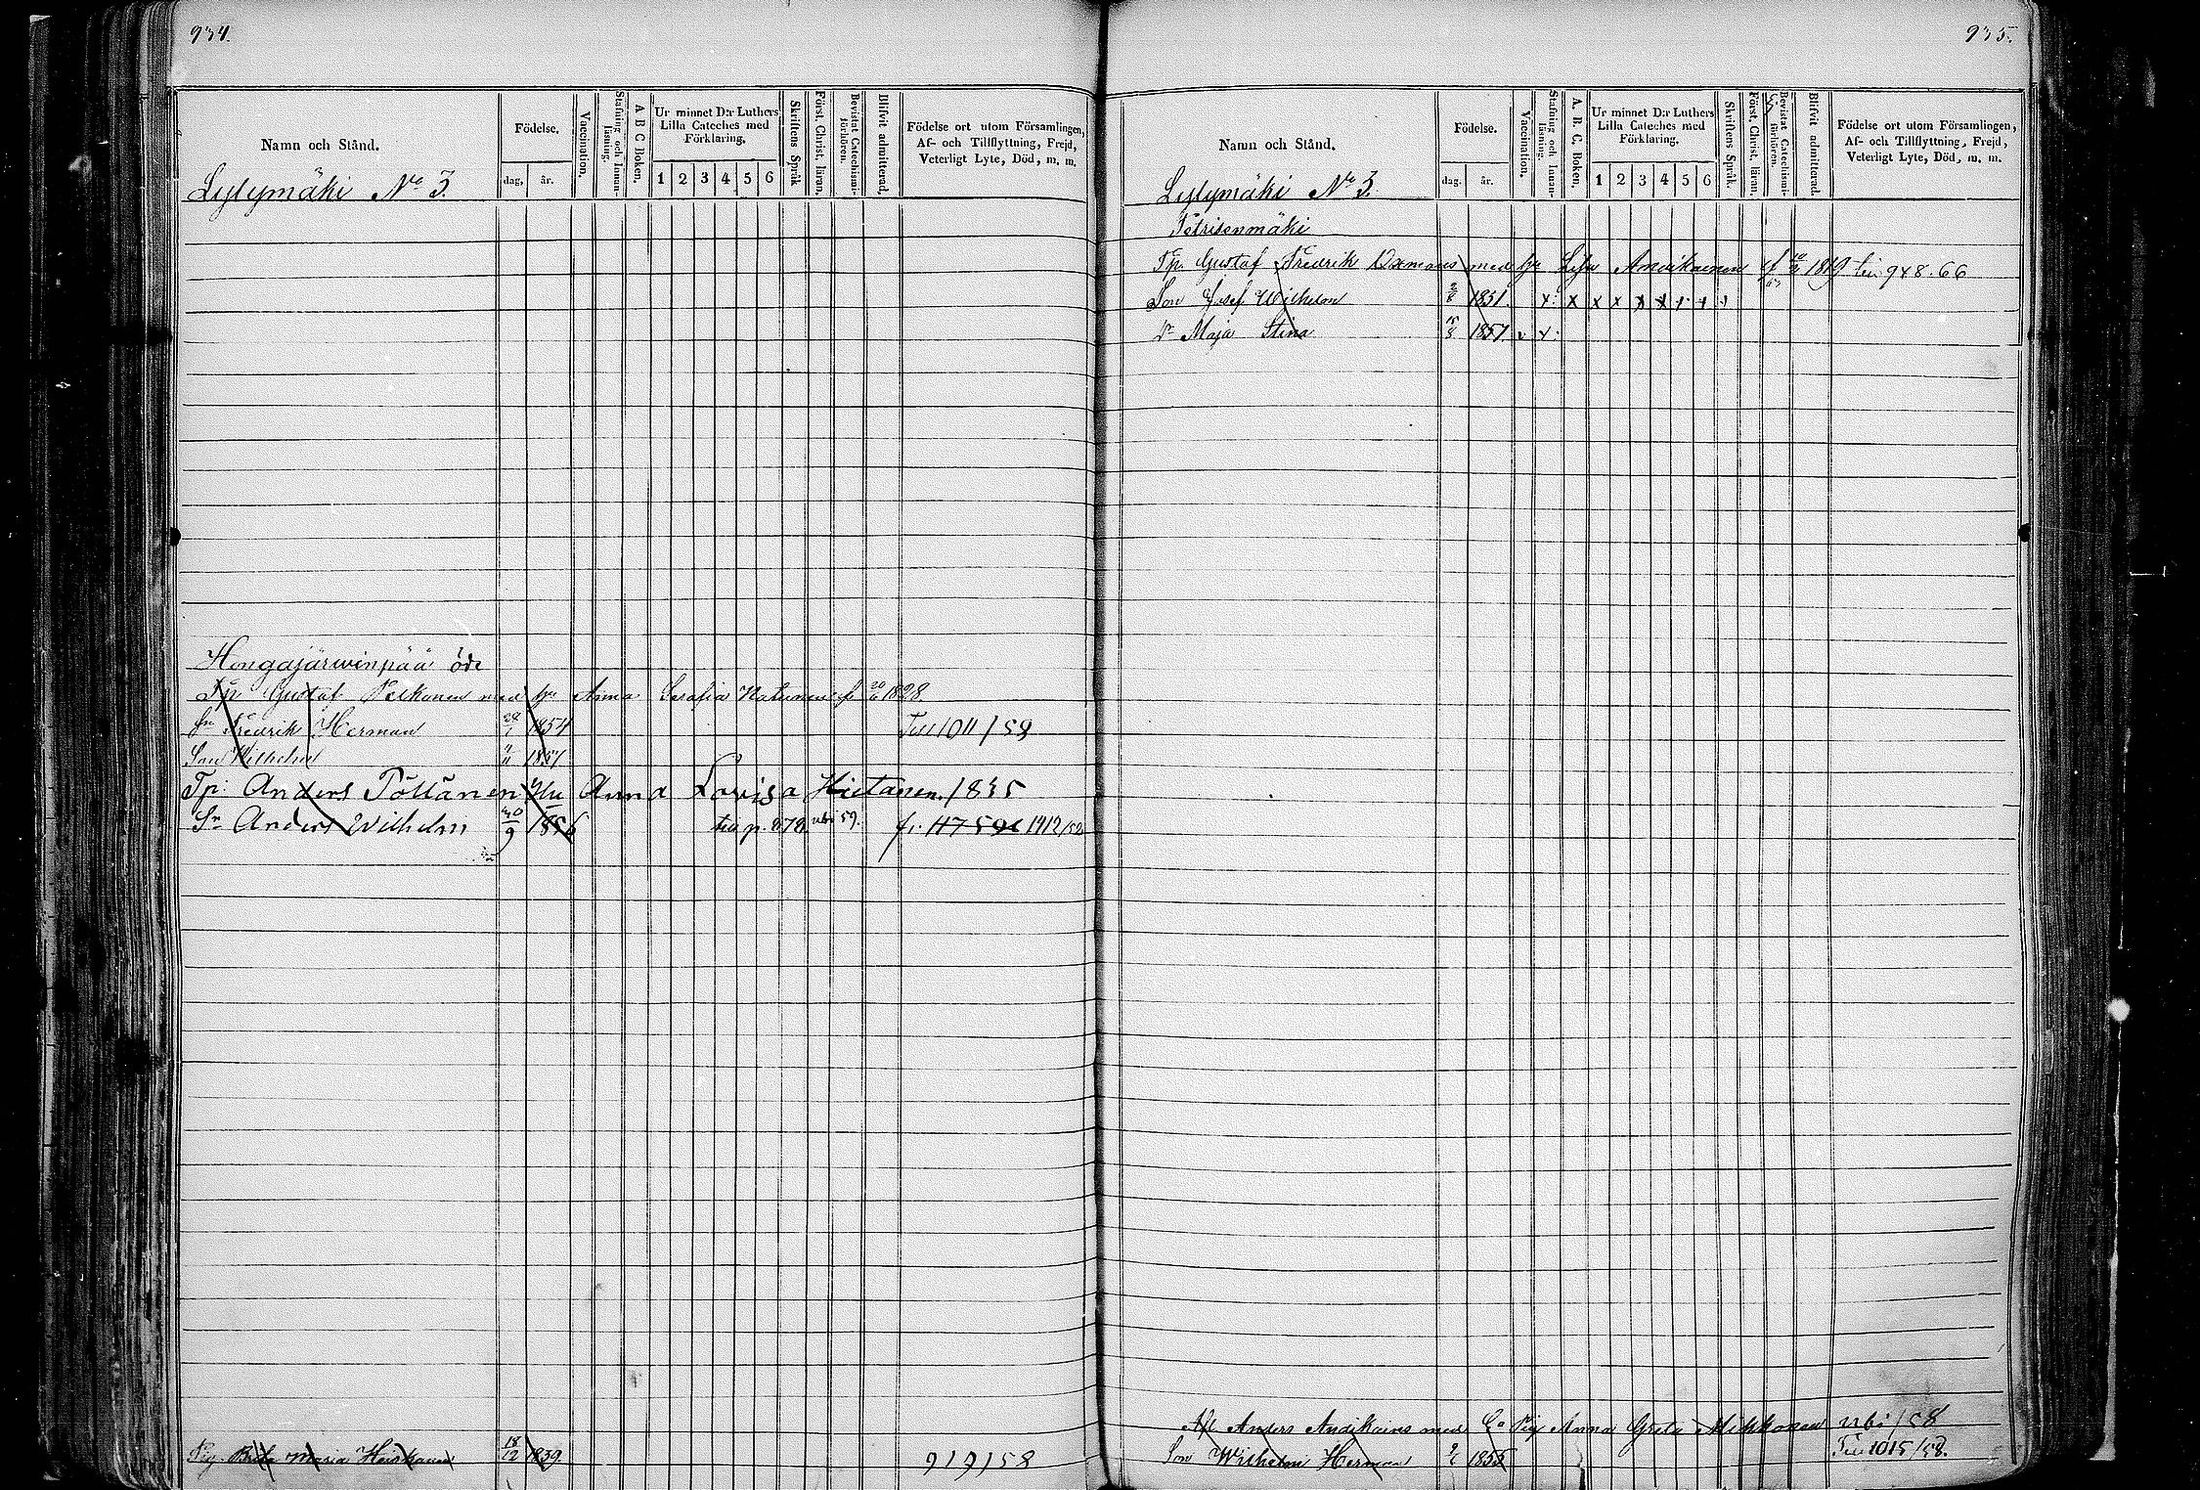 934.
Namn och Stånd.
Födelse.
dag, år.
Vaccination.
Stafning och Innan-läsning.
A B C Boken.
Ur minnet D:r Luthers Lilla Cateches med Förklaring.
1 2 3 4 5 6
Skriftens Språk
Först. Christ. läran.
Bevistat Catechismi-förhören.
Blifvit admitterad.
Födelse ort utom Församlingen, Af- och Tillflyttning, Frejd, Veterligt Lyte, Död, m. m.
Lylymäki No 3.
Hongajärwinpää öde
Tp Gustaf Pelkonen med hu Anna Serafia f 20/6 1828
Sn Fredrik Herman 1854 Till 1011/59
Son Wilhelm 11/11 1857
Tp: Anders Pöllänen Hu Anna Lovisa Hietanen 1835
Sn Anders Wilhelm 30/9 1856 till p. 878 ubi 59. fr. 1175 1412/58
Pig. Brita Maria Heiskanen 18/12 1839. 919/58
935.
Namn och Stånd.
Födelse.
dag. år.
Vaccination.
Stafning och Innan-läsning.
A. B. C. Boken.
Ur minnet D:r Luthers Lilla Cateches med Förklaring.
1 2 3 4 5 6
Skriftens Språk.
Först. Christ. läran.
Bevistat Catechismi-förhören.
Blifvit admitterad.
Födelse ort utom Församlingen, Af- och Tillflyttning, Frejd, Veterligt Lyte, Död, m. m.
Lylymäki No 3.
Petrisenmäki
Tp. Gustaf Fredrik med hu Lisa f 1819 948.66
Son Josef Wilhelm 2/8 1851. x: x x x x x + + +
Dr Maja Stina 15/3 1857. v x:
Anders Andikainen med Co Pig Anna Greta Mikkonen ubi/58
Son Wilhelm Herman 2/2 1855 Till 1015/58.